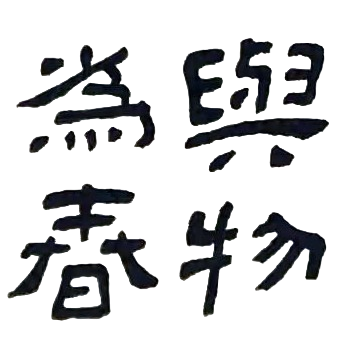 與物
為春